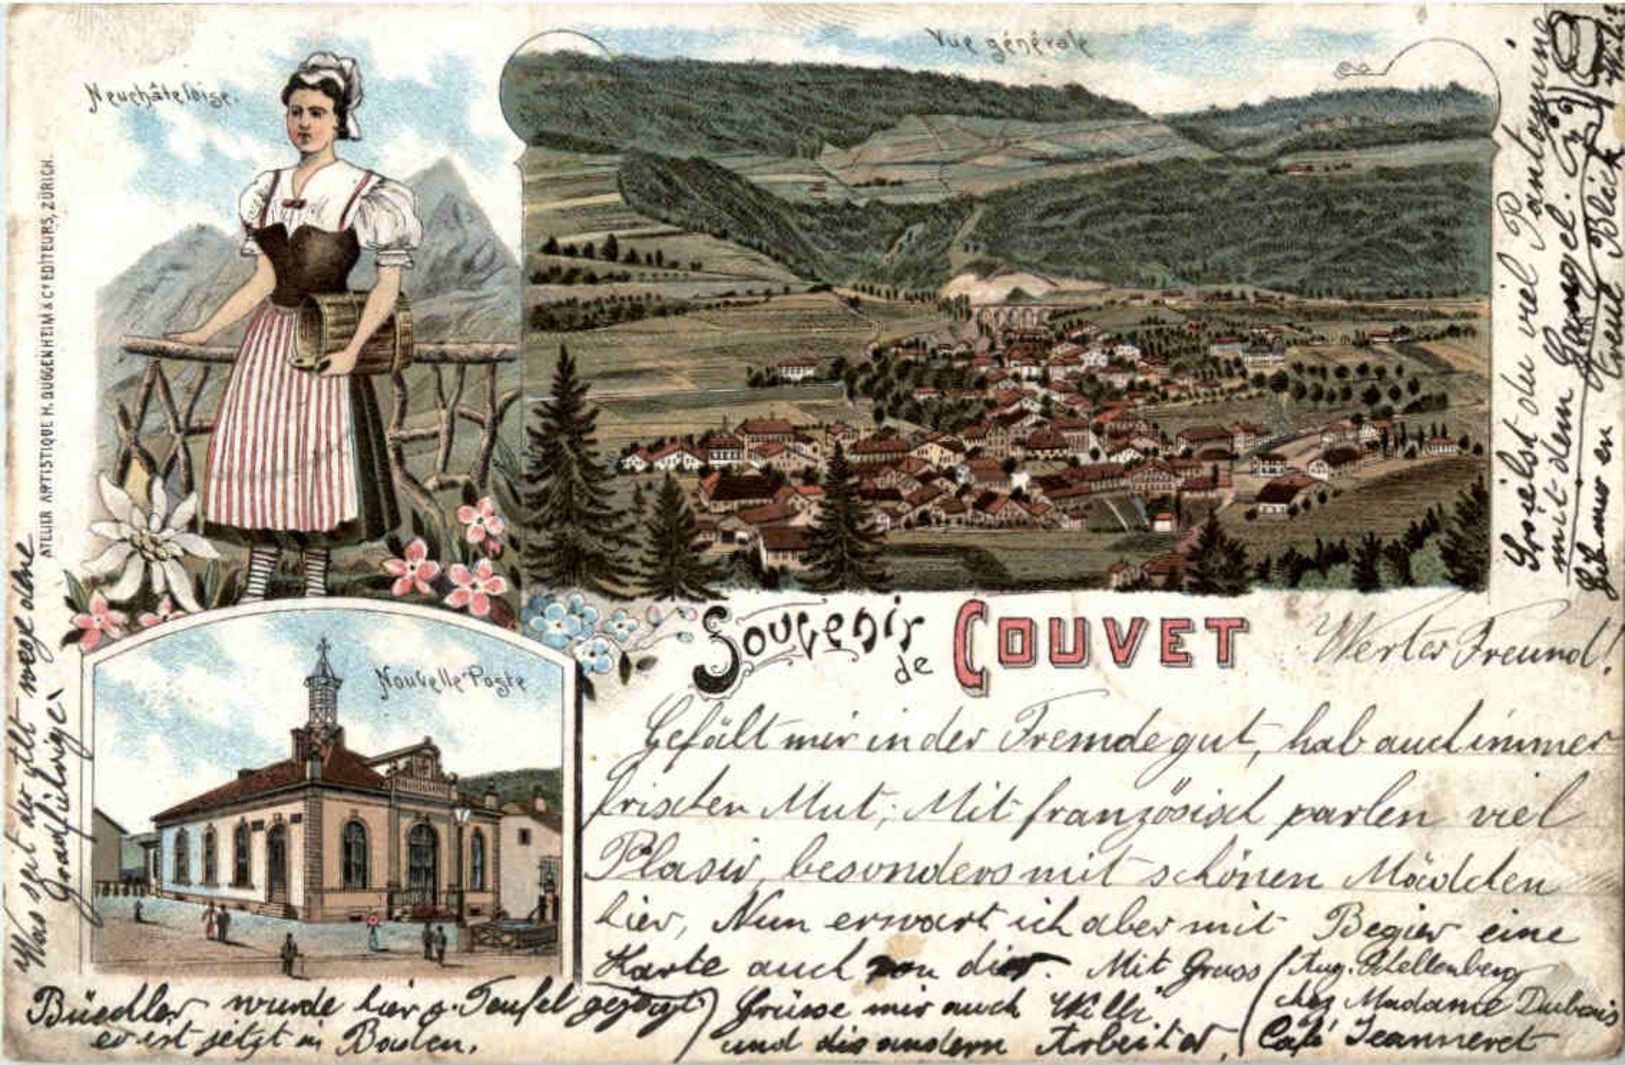 Neuchâteloise.
Vue générale
ATELIER ARTISTIQUE H. GUGGENHEIM & Cº EDITEURS, ZÜRICH.
Nouvelle Poste
Souvenir de COUVET
Werter Freund!
Gefält mir in der Fremde gut, hab auch immer
frischen Mut, Mit französisch parlen viel
Plasir, besonders mit schönen Mädchen
hier, Nun erwart ich aber mit Begier eine
Karte auch von dir. Mit Gruss
Aug. Schellenberg
chez Madame Dubois
Café Jeanneret
Grüsse mir auch Willi
und die andern Arbeiter,
Büechler wurde hier z. Teufel gejagt
er ist jetzt in Baden.
Was seit der
Spielst du viel Pantomine
mit dem